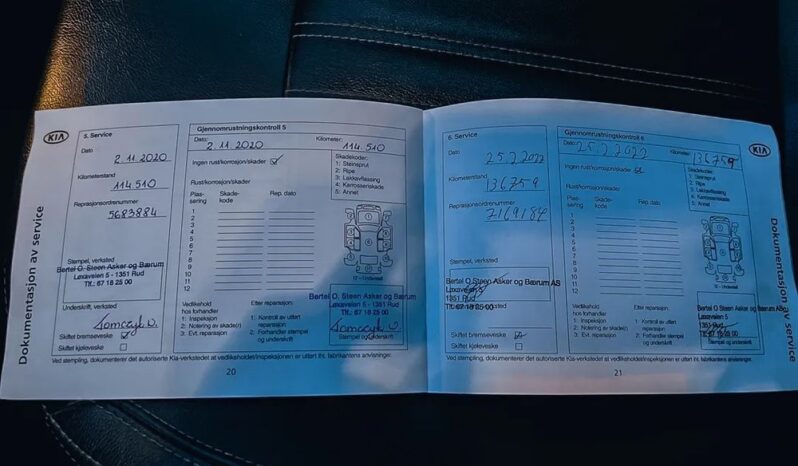 KIA
Dokumentasjon av service
5. Service
Dato
2.11.2020
Kilometerstand
114.510
Reprasjonsordrenummer
5683884
Stempel, verksted
Bertel O. Steen Asker og Bærum
Løxaveien 5 - 1351 Rud
Tlf.: 67 18 25 00
Underskrift, verksted
Skiftet bremsevæske
Skiftet kjølevæske
Gjennomrustningskontroll 5
Dato:
2.11.2020
Kilometer:
114.510
Ingen rust/korrosjon/skader
Rust/korrosjon/skader:
Plas-
sering
Skade-
kode
Rep. dato
1
2
3
4
5
6
7
8
9
10
11
12
Skadekoder:
1: Steinsprut
2: Ripe
3: Lakkavflassing
4: Karosseriskade
5: Annet
12 - Understell
Vedlikehold
hos forhandler
1: Inspeksjon
2: Notering av skade(r)
3: Evt. reparasjon
Etter reparasjon:
1: Kontroll av utført
reparasjon
2: Forhandler stempel
og underskrift
Bertel O. Steen Asker og Bærum
Løxaveien 5 - 1351 Rud
Tlf.: 67 18 25 00
Stempel og underskrift
Ved stempling, dokumenterer det autoriserte Kia-verkstedet at vedlikeholdet/inspeksjonen er utført iht. fabrikantens anvisninger.
20
6. Service
Dato
25.2.2022
Kilometerstand
136759
Reprasjonsordrenummer
7169184
Stempel, verksted
Bertel O. Steen Asker og Bærum AS
Løxaveien 5
1351 Rud
Tlf: 67 18 25 00
Underskrift, verksted
Skiftet bremsevæske
Skiftet kjølevæske
Gjennomrustningskontroll 6
Dato:
25.2.2022
Kilometer:
136759
Ingen rust/korrosjon/skader
Rust/korrosjon/skader:
Plas-
sering
Skade-
kode
Rep. dato
1
2
3
4
5
6
7
8
9
10
11
12
Skadekoder:
1: Steinsprut
2: Ripe
3: Lakkavflassing
4: Karosseriskade
5: Annet
12 - Understell
Vedlikehold
hos forhandler
1: Inspeksjon
2: Notering av skade(r)
3: Evt. reparasjon
Etter reparasjon:
1: Kontroll av utført
reparasjon
2: Forhandler stempel
og underskrift
Bertel O. Steen Asker og Bærum AS
Løxaveien 5
1351 Rud
Tlf: 67 18 25 00
Stempel og underskrift
Ved stempling, dokumenterer det autoriserte Kia-verkstedet at vedlikeholdet/inspeksjonen er utført iht. fabrikantens anvisninger.
21
KIA
Dokumentasjon av service